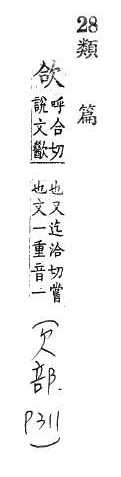 28類篇
欱
呼合切
說文歠
也又迄洽切嘗
也文一重音一
(欠部. P311)